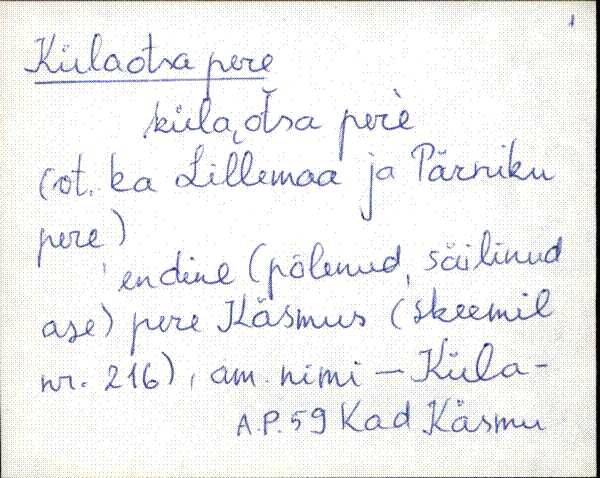 1
Külaotsa pere
küla͵otsa pere
(vt. ka Lillemaa ja Pärniku
pere)
endine (põlenud, säilinud
ase) pere Käsmus (skeemil
nr. 216), am. nimi – Küla-
A.P. 59 Kad Käsmu